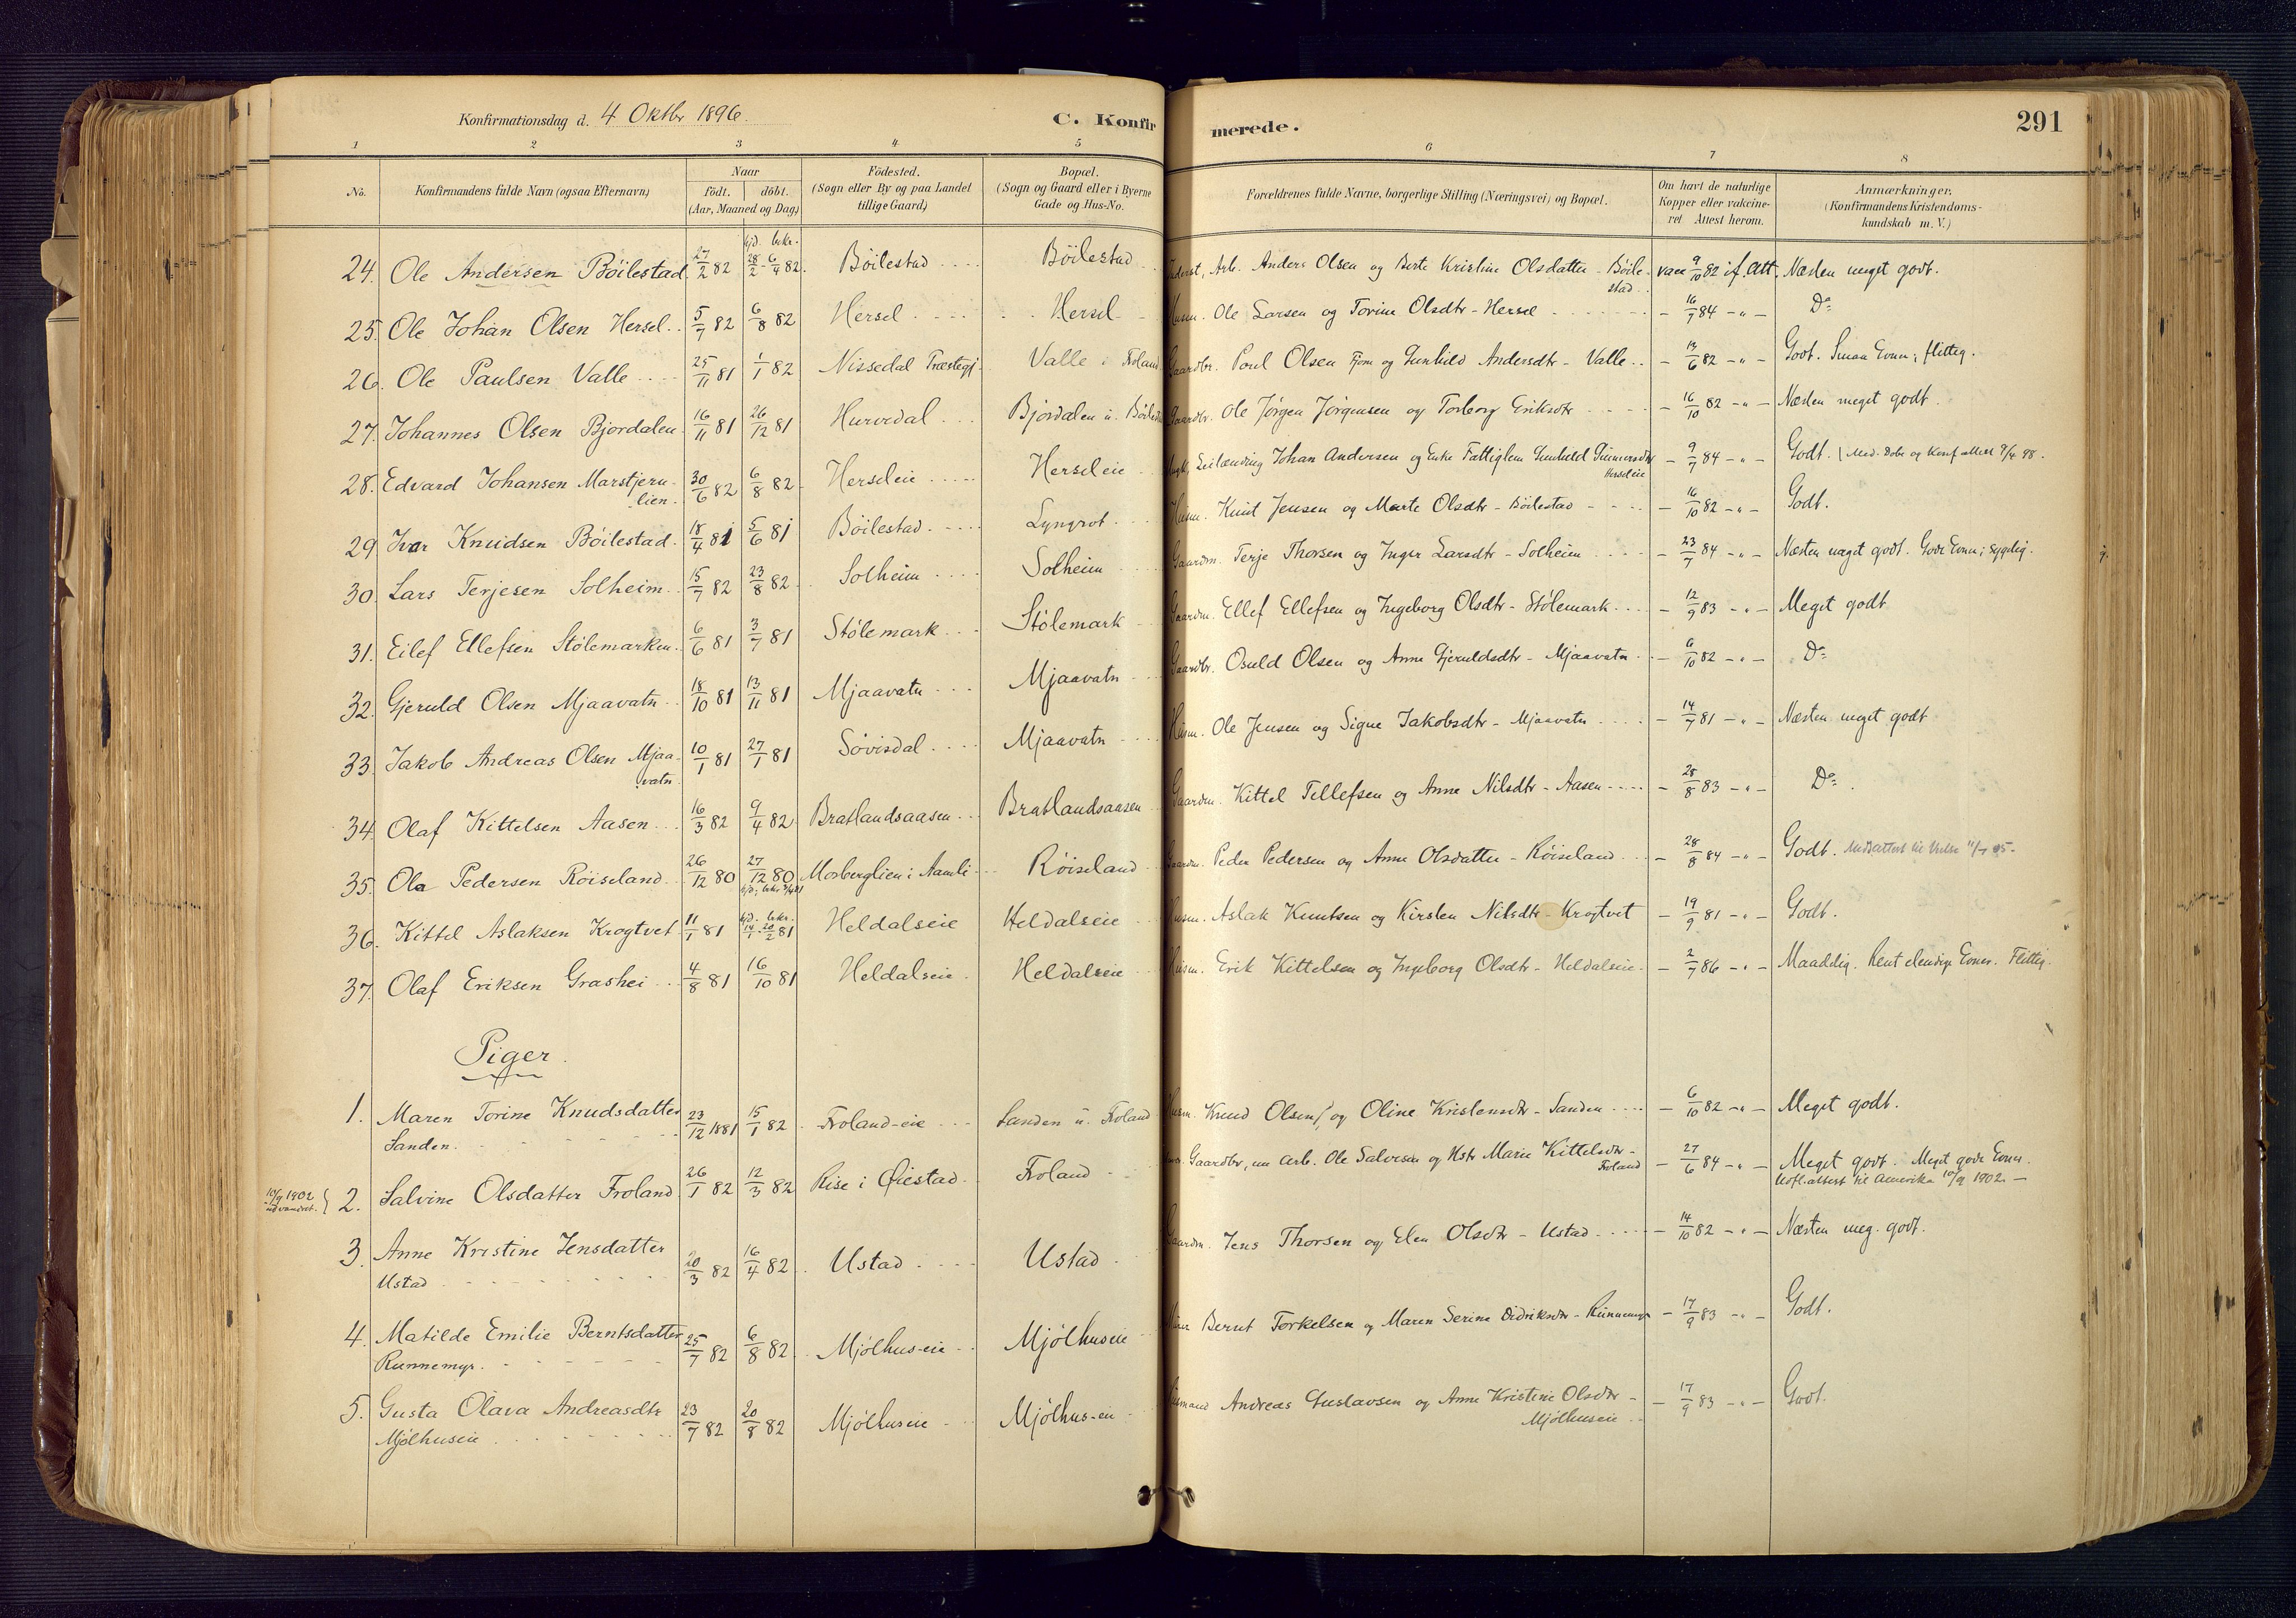 Konfirmationsdag d. 4 Oktbr 1896.
C. Konfirmerede.
291
1 2 3 4 5 6 7 8
No.
Konfirmandens fulde Navn (ogsaa Efternavn)
Naar
födt. döbt.
(Aar, Maaned og Dag)
Födested.
(Sogn eller By og paa Landet
tillige Gaard)
Bopæl.
(Sogn og Gaard eller i Byerne
Gade og Hus-No.
Forældrenes fulde Navne, borgerlige Stilling (Næringsvei) og Bopæl.
Om havt de naturlige
Kopper eller vakcine-
ret Attest herom.
Anmærkninger.
(Konfirmandens Kristendoms-
kundskab m. V.)
24. Ole Andersen Böilestad 27/2 82 hjd. 28/2 - bekr. 6/4 82. Böilestad Böilestad Arb. Anders Olsen og Berte Kristine Olsdatter - Böile-
stad vacc 9/10 82 if. Att. Næsten meget godt.
25. Ole Johan Olsen Hersel 5/7 82 6/8 82 Hersel Hersel Husm. Ole Larsen og Torine Olsdtr - Hersel - 16/7 84 - " - Do
26. Ole Paulsen Valle 25/11 81 1/1 82 Nissedal Præstegj. Valle i Froland Gaardbr. Poul Olsen og Gunhild Andersdtr - Valle - 13/6 82 - " - Godt. Smaa Evner; flittig.
27. Johannes Olsen Bjordalen 16/11 81 26/12 81 Hurvedal Bjordalen u. Böilestad Gaardbr. Ole Jörgen Jörgensen og Torborg Eriksdtr - 16/10 82 - " - Næsten meget godt.
28. Edvard Johansen Marstjern-
lien. 30/6 82 6/8 82 Herseleie Herseleie Leilænding Johan Andersen og Enke Fattiglem Gunhild Gunnersdtr
Herseleie - 9/7 84 - " - Godt.
29. Ivar Knudsen Böilestad 18/4 81 5/6 81 Böilestad Lyngrot Husm. Knut Jensen og Marte Olsdtr - Böilestad - 16/10 82 - " - Godt.
30. Lars Terjesen Solheim 15/7 82 23/8 82 Solheim Solheim Gaardm. Terje Thorsen og Inger Larsdtr - Solheim - 23/7 84 - " - Næsten meget godt. Gode Evner; sygelig.
31. Eilef Ellefsen Stölemarken 6/6 81 3/7 81 Stölemark Stölemark Gaardm. Ellef Ellefsen og Ingeborg Olsdtr - Stölemark - 12/9 83 - " - Meget godt
32. Gjeruld Olsen Mjaavatn 18/10 81 13/11 81 Mjaavatn Mjaavatn Gaardbr. Osuld Olsen og Anne Gjeruldsdtr - Mjaavatn - 6/10 82 - " - Do
33. Jakob Andreas Olsen Mjaa-
vatn 10/1 81 27/1 81 Sövisdal Mjaavatn Husm. Ole Jensen og Signe Jakobsdtr - Mjaavatn - 14/7 81 - " - Næsten meget godt
34. Olaf Kittelsen Aasen 16/3 82 9/4 82 Bratlandsaasen Bratlandsaasen Gaardm. Kittel Tellefsen og Anne Nilsdtr - Aasen - 28/8 83 - " - Do
35. Ola Pedersen Röiseland 26/12 80 27/12 80 Mosberglien i Aamli Röiseland Gaardm. Peder Pedersen og Anne Olsdatter - Röiseland - 28/8 84 - " - Godt.
36. Kittel Aslaksen Krogtvet 11/1 81 hjd. 14/1 - bekr. 20/2 81 Heldalseie Heldalseie Husm. Aslak Knutsen og Kirsten Nilsdtr - Krogtvet - 19/9 81 - " - Godt.
37. Olaf Eriksen Grashei 4/8 81 16/10 81 Heldalseie Heldalseie Husm. Erik Kittelsen og Ingeborg Olsdtr - Heldalseie - 2/7 86 - " - Maadelig. Rent elendige Evner. Flittig.
Piger.
1. Maren Torine Knudsdatter
Sanden. 23/12 1881 15/1 82 Froland-eie Sanden u. Froland Husm. Knud Olsen og Oline Kristensdtr - Sanden - 6/10 82 - " - Meget godt.
10/9 1902
udvandret. 2. Salvine Olsdatter Froland 26/1 82 12/3 82 Rise i Öiestad Froland Gaardbr, nu Arb. Ole Salvesen og Hstr Marie Kittelsdtr -
Froland - 27/6 84 - " - Meget godt. Meget gode Evner.
Udfl.attest til Amerika 10/9 1902. -
3. Anne Kristine Jensdatter
Ustad 20/3 82 16/4 82 Ustad Ustad Gaardm. Jens Thorsen og Elen Olsdtr - Ustad - 14/10 82 - " - Næsten meg. godt.
4. Matilde Emilie Berntsdatter
Runnemyr. 25/7 82 6/8 82 Mjölhus-eie Mjölhuseie Bernt Torkelsen og Maren Serine Didriksdtr - Runnemyr - 17/9 83 - " - Godt.
5. Gusta Olava Andreasdtr
Mjölhuseie 23/7 82 20/8 82 Mjölhuseie Mjölhus-eie Husmand Andreas Gustavsen og Anne Kristine Olsdtr -
Mjölhuseie - 17/9 83 - " - Godt.